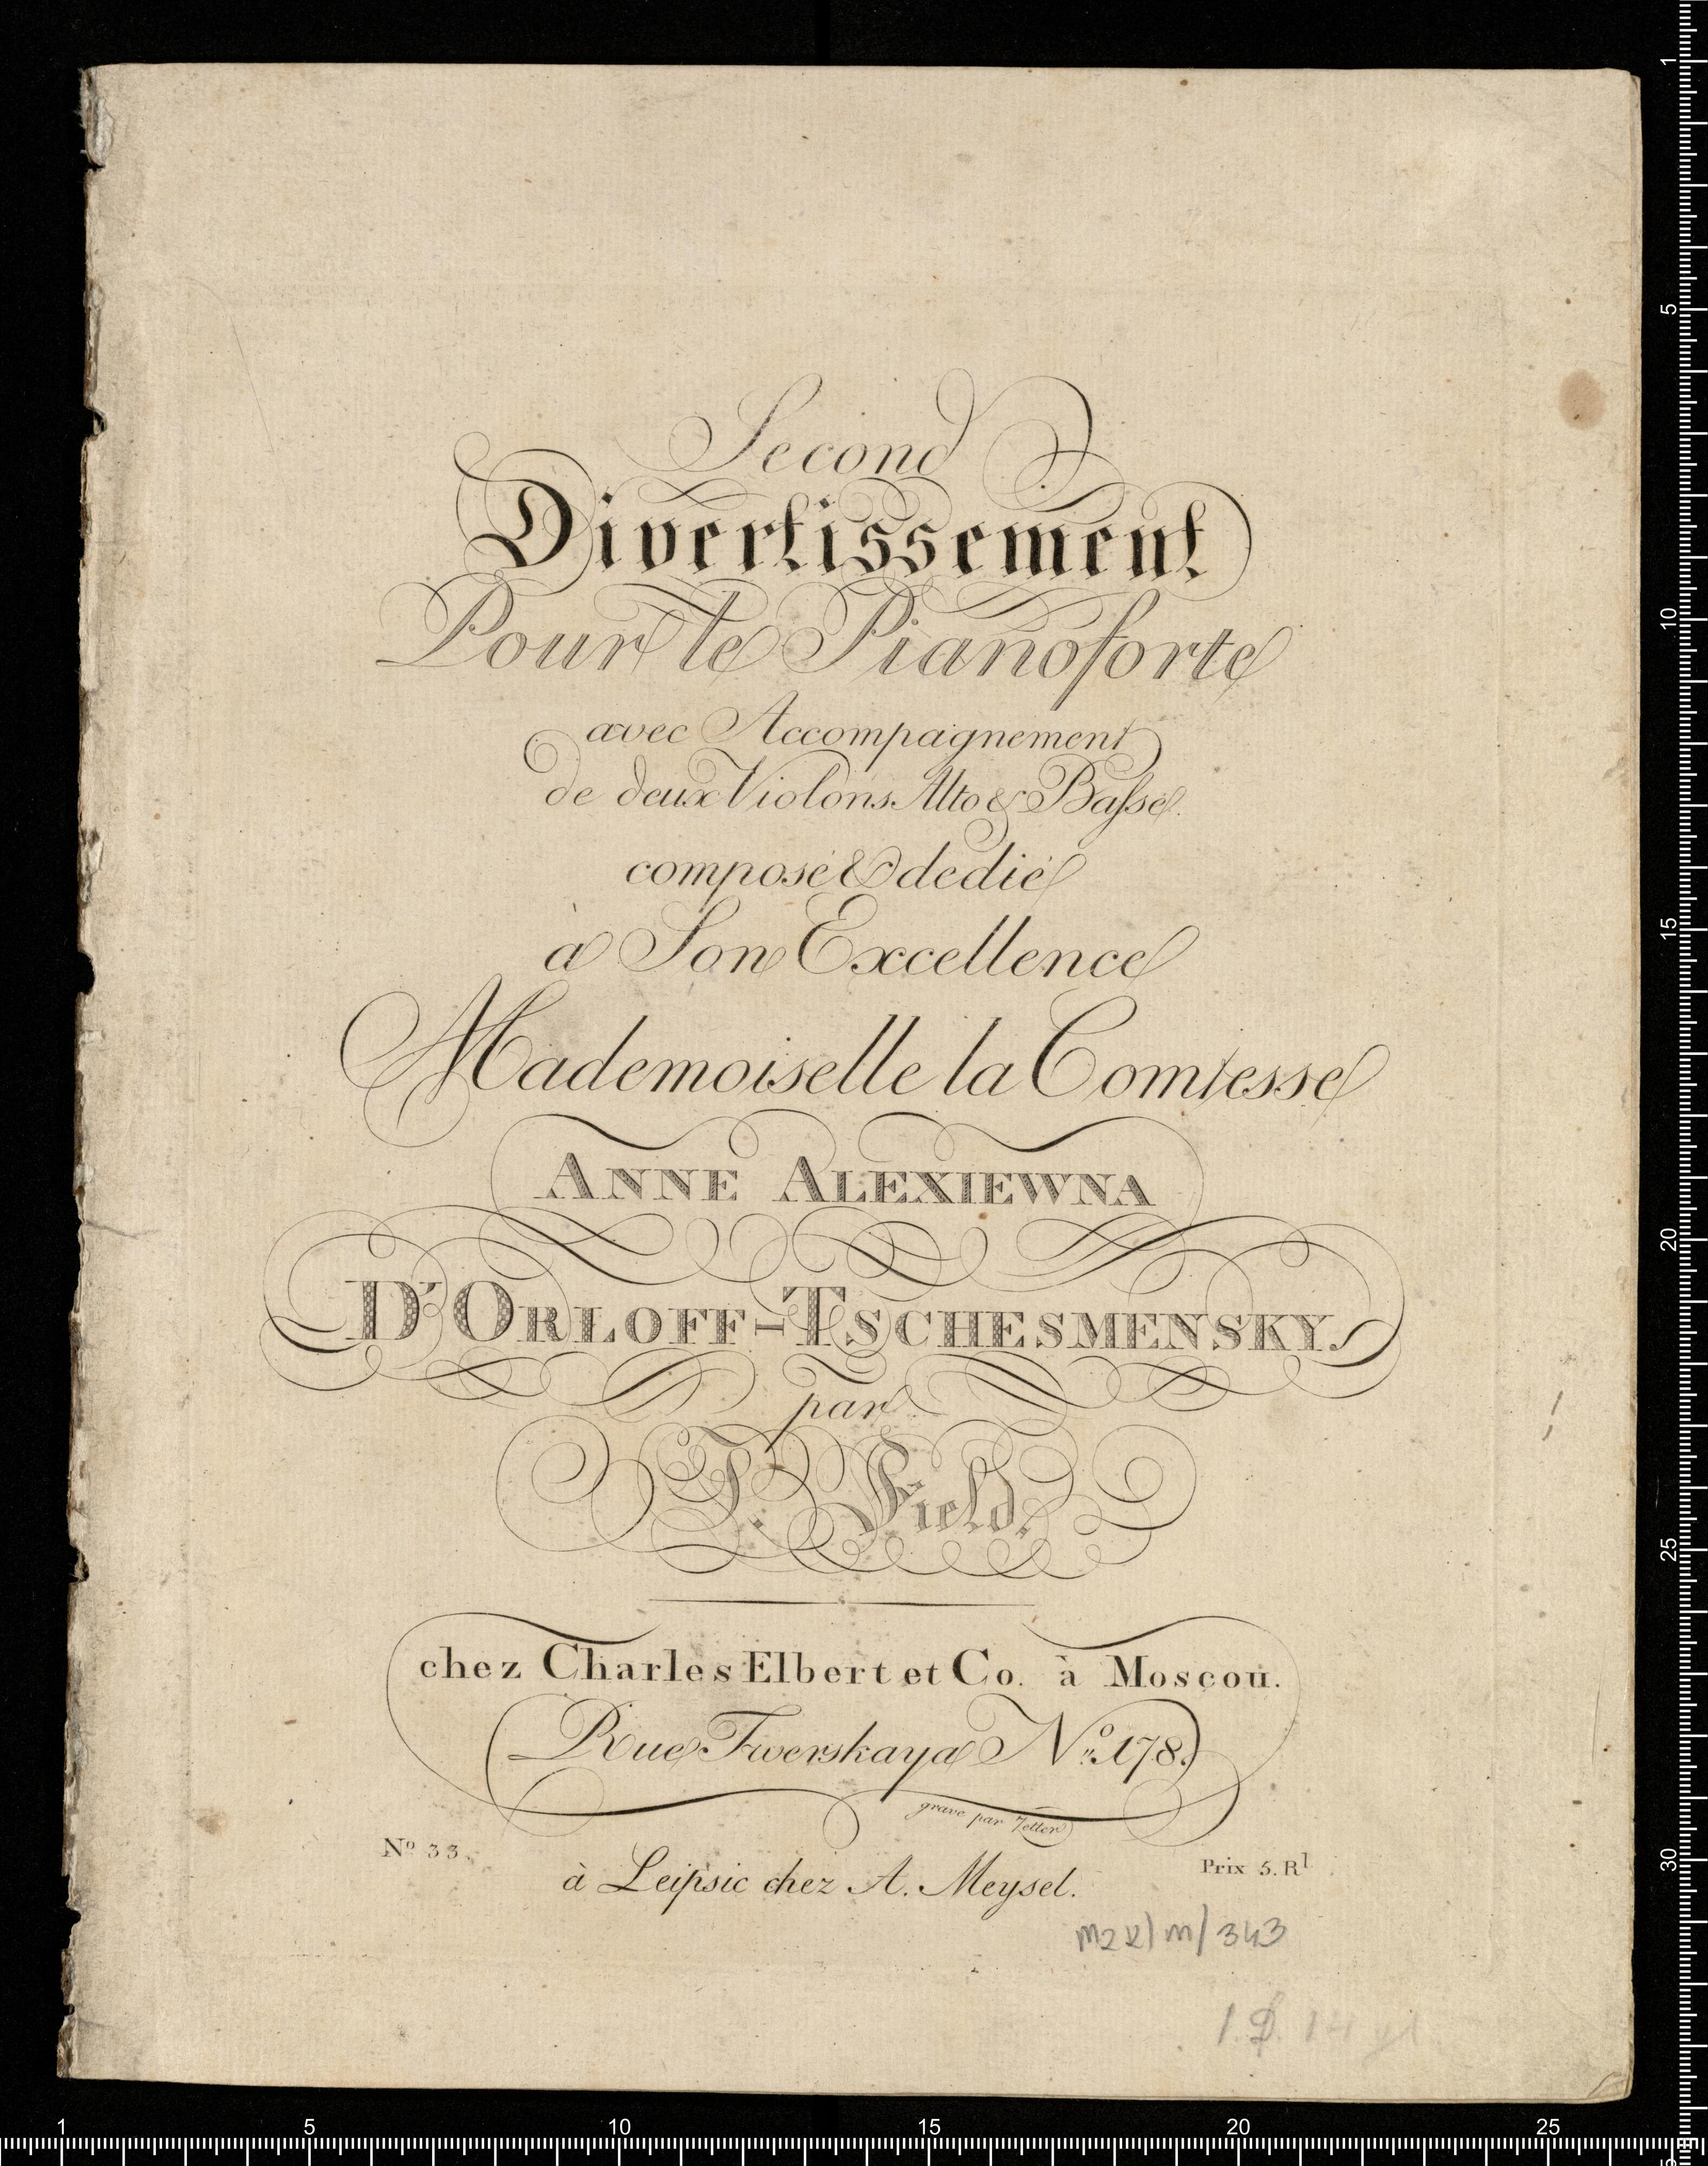 Second
Divertissement
Pour le Pianoforte
avec Accompagnement
de deux Violons Alto & Basse.
composé & dedié
à Son Excellence
Mademoiselle la Comtesse
ANNE ALEXIEWNA
D'ORLOFF-TSCHESMENSKY.
par
J. Field.
chez Charles Elbert et Co. à Moscou.
Rue Twerskaya No. 178.
gravé par Jetter
No 33.
Prix 5. Rl
à Leipsic chez A. Meysel.
343
1
5
10
15
20
25
30
1
5
10
15
20
25